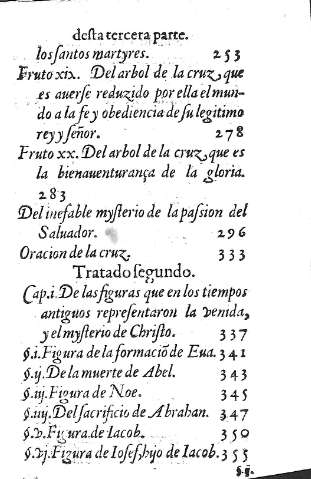 desta tercera parte.
los santos martyres. 253
Fruto xix. Del arbol de la cruz, que
es auerse reduzido por ella el mun-
do a la fe y obediencia de su legitimo
rey y señor. 278
Fruto xx. Del arbol de la cruz, que es
la bienauenturança de la gloria.
283
Del inefable mysterio de la passion del
Saluador. 296
Oracion de la cruz. 333
Tratado segundo.
Cap. i. De las figuras que en los tiempos
antiguos representaron la venida,
y el mysterio de Christo. 337
§. i. Figura de la formacion de Eua. 341
§. ij. De la muerte de Abel. 343
§. iij. Figura de Noe. 345
§. iiij. Del sacrificio de Abrahan. 347
§. v. Figura de Iacob. 350
§. vj. Figura de Iosef, hijo de Iacob. 355